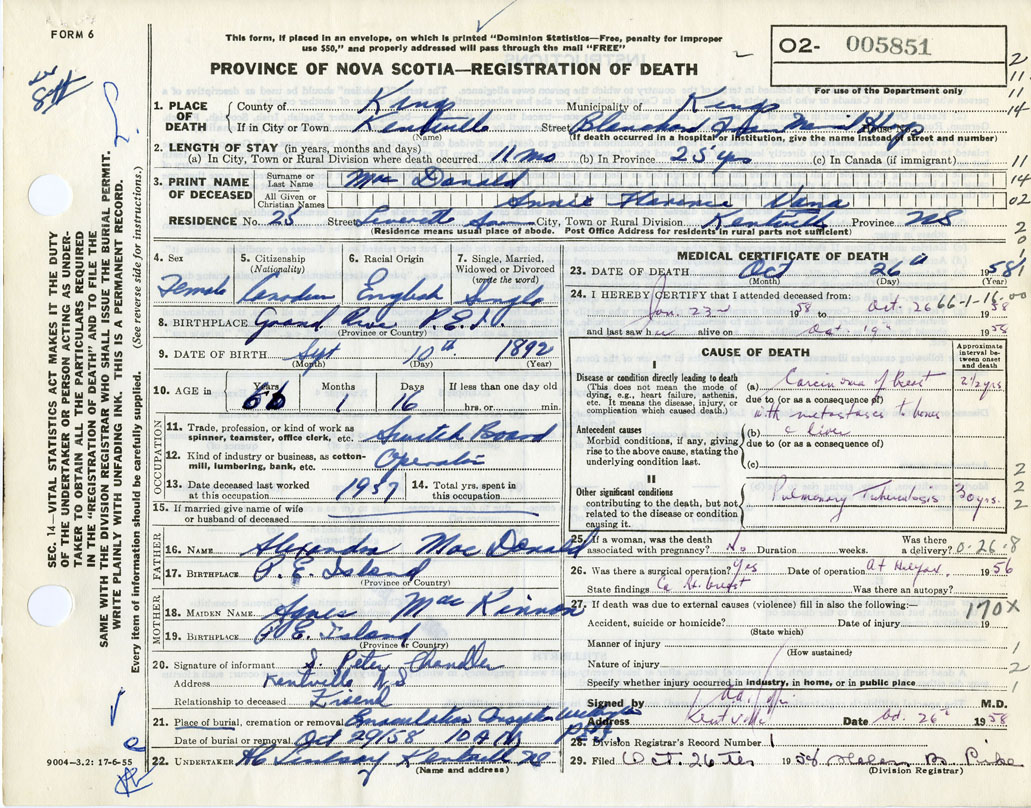 FORM 6
This form, if placed in an envelope, on which is printed "Dominion Statistics—Free, penalty for improper
use $50," and properly addressed will pass through the mail "FREE"
PROVINCE OF NOVA SCOTIA—REGISTRATION OF DEATH
O2- 005851
For use of the Department only
SEC. 14—VITAL STATISTICS ACT MAKES IT THE DUTY
OF THE UNDERTAKER OR PERSON ACTING AS UNDER-
TAKER TO OBTAIN ALL THE PARTICULARS REQUIRED
IN THE "REGISTRATION OF DEATH" AND TO FILE THE
SAME WITH THE DIVISION REGISTRAR WHO SHALL ISSUE THE BURIAL PERMIT.
WRITE PLAINLY WITH UNFADING INK. THIS IS A PERMANENT RECORD.
Every item of information should be carefully supplied. (See reverse side for instructions.)
1. PLACE OF DEATH County of Kings Municipality of Kings
If in City or Town Kentville Street House No.
(Name) (If death occurred in a hospital or institution, give the name instead of street and number)
2. LENGTH OF STAY (in years, months and days)
(a) In City, Town or Rural Division where death occurred 11 mo (b) In Province 25 yrs (c) In Canada (if immigrant)
3. PRINT NAME OF DECEASED Surname or Last Name Mac Donald
All Given or Christian Names Annie Florence Vana
RESIDENCE No. 25 Street City, Town or Rural Division Kentville Province NS
(Residence means usual place of abode. Post Office Address for residents in rural parts not sufficient)
4. Sex 5. Citizenship (Nationality) 6. Racial Origin 7. Single, Married, Widowed or Divorced (write the word)
Female Canadian English Single
8. BIRTHPLACE Grand River P.E.I.
(Province or Country)
9. DATE OF BIRTH Sept 10th 1892
(Month) (Day) (Year)
10. AGE in Years Months Days If less than one day old
66 1 16 hrs. or min.
OCCUPATION
11. Trade, profession, or kind of work as spinner, teamster, office clerk, etc. Switch Board
12. Kind of industry or business, as cotton-mill, lumbering, bank, etc. Operator
13. Date deceased last worked at this occupation 1957 14. Total yrs. spent in this occupation
15. If married give name of wife or husband of deceased
FATHER
16. NAME Alexander Mac Donald
17. BIRTHPLACE P. E. Island
(Province or Country)
MOTHER
18. MAIDEN NAME Agnes Mac Kinnon
19. BIRTHPLACE P. E. Island
(Province or Country)
20. Signature of informant J. Peter Chandler
Address Kentville N.S
Relationship to deceased Friend
21. Place of burial, cremation or removal
Date of burial or removal Oct 29/58 10 A M
22. UNDERTAKER Lindsay Kentville NS
(Name and address)
9004—3.2: 17-6-55
MEDICAL CERTIFICATE OF DEATH
23. DATE OF DEATH Oct 26th 1958
(Month) (Day) (Year)
24. I HEREBY CERTIFY that I attended deceased from:
Jan. 23rd 1958 to Oct. 26 1958
66-1-16-00
and last saw her alive on Oct. 19th 1958
CAUSE OF DEATH
Approximate interval between onset and death
I
Disease or condition directly leading to death
(This does not mean the mode of dying, e.g., heart failure, asthenia, etc. It means the disease, injury, or complication which caused death.)
(a) Carcinoma of Breast 2 1/2 yrs
due to (or as a consequence of)
with metastases to bones
Antecedent causes
Morbid conditions, if any, giving rise to the above cause, stating the underlying condition last.
(b) & liver
due to (or as a consequence of)
(c)
II
Other significant conditions
contributing to the death, but not related to the disease or condition causing it.
Pulmonary Tuberculosis 30 yrs.
25. If a woman, was the death associated with pregnancy? No Duration weeks. Was there a delivery? 0-26-8
26. Was there a surgical operation? Yes Date of operation At Halifax 1956
State findings Ca. Rt. breast Was there an autopsy?
27. If death was due to external causes (violence) fill in also the following:— 170X
Accident, suicide or homicide? Date of injury 19
(State which)
Manner of injury
(How sustained)
Nature of injury
Specify whether injury occurred in industry, in home, or in public place
Signed by M.D.
Address Kentville Date Oct. 26th 1958
28. Division Registrar's Record Number 1
29. Filed Oct. 26th 1958 Helen B.
(Division Registrar)